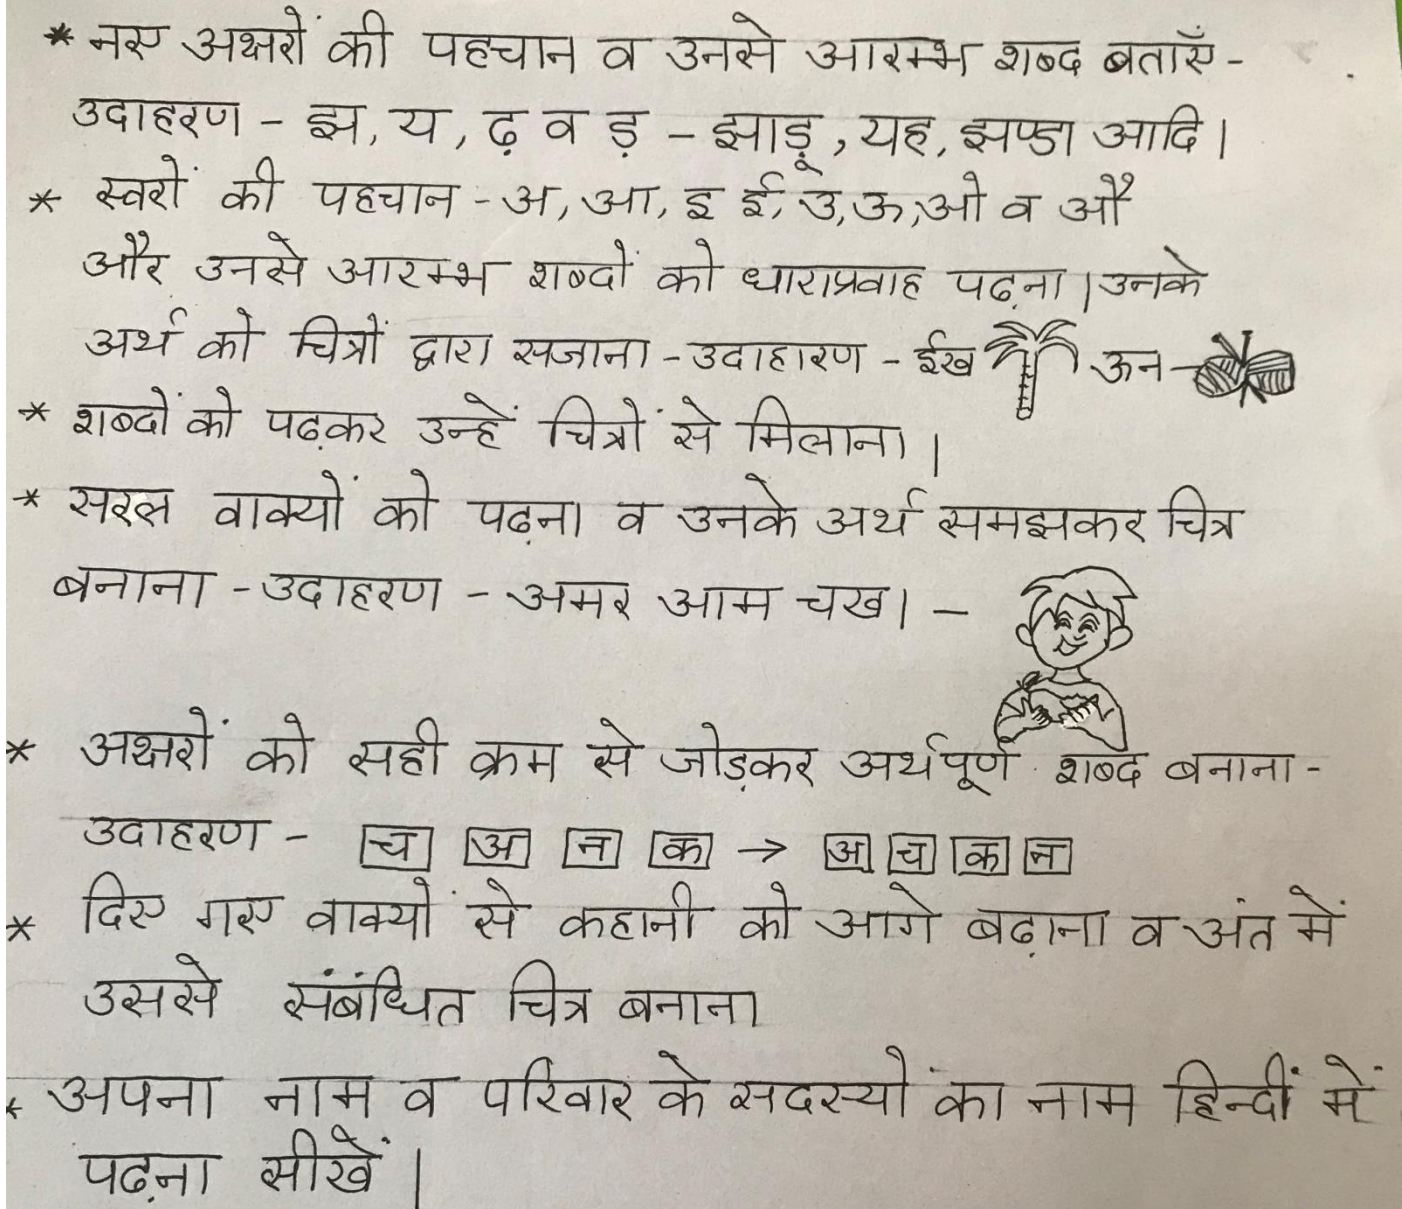 * नए अक्षरों की पहचान व उनसे आरम्भ शब्द बताएँ -
उदाहरण - झ, य, ढ़ व ड़ - झाड़ू, यह, झण्डा आदि।
* स्वरों की पहचान - अ, आ, इ ई, उ, ऊ, ओ व औ
और उनसे आरम्भ शब्दों को धाराप्रवाह पढ़ना। उनके
अर्थ को चित्रों द्वारा सजाना - उदाहारण - ईख ऊन -
* शब्दों को पढ़कर उन्हें चित्रों से मिलाना।
* सरल वाक्यों को पढ़ना व उनके अर्थ समझकर चित्र
बनाना - उदाहरण - अमर आम चख। -
* अक्षरों को सही क्रम से जोड़कर अर्थपूर्ण शब्द बनाना -
उदाहरण - च अ न क → अ च क न
* दिए गए वाक्यों से कहानी को आगे बढ़ाना व अंत में
उससे संबंधित चित्र बनाना
* अपना नाम व परिवार के सदस्यों का नाम हिन्दीं में
पढ़ना सीखें।